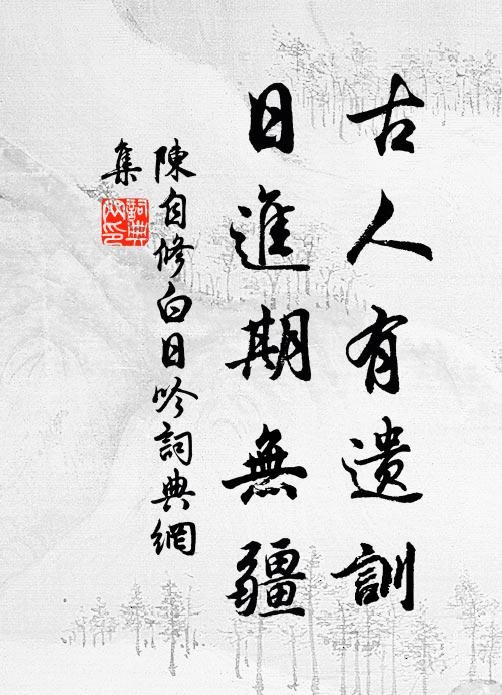 古人有遺訓
日進期無疆
陳自修白日吟詞典網
集
詞典網印